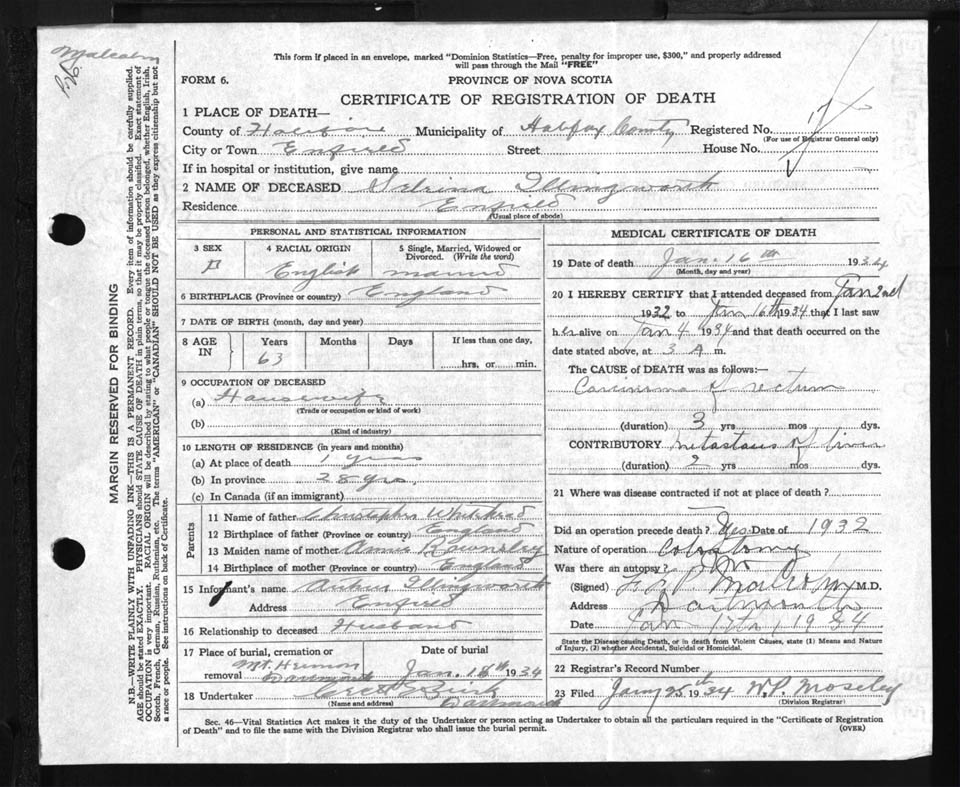 Malcolm
This form if placed in an envelope, marked "Dominion Statistics—Free, penalty for improper use, $300," and properly addressed
will pass through the Mail "FREE"
FORM 6.
PROVINCE OF NOVA SCOTIA
CERTIFICATE OF REGISTRATION OF DEATH
1 PLACE OF DEATH—
County of Municipality of Halifax County Registered No.
(For use of Registrar General only)
City or Town Enfield Street House No.
If in hospital or institution, give name
2 NAME OF DECEASED Illingworth
Residence Enfield
(Usual place of abode)
PERSONAL AND STATISTICAL INFORMATION
3 SEX 4 RACIAL ORIGIN 5 Single, Married, Widowed or
Divorced. (Write the word)
F English married
6 BIRTHPLACE (Province or country) England
7 DATE OF BIRTH (month, day and year)
8 AGE IN Years Months Days If less than one day,
63 hrs. or min.
9 OCCUPATION OF DECEASED
(a) Housewife
(Trade or occupation or kind of work)
(b)
(Kind of industry)
10 LENGTH OF RESIDENCE (in years and months)
(a) At place of death 1 year
(b) In province 28 yrs.
(c) In Canada (if an immigrant)
Parents
11 Name of father Christopher Whitehead
12 Birthplace of father (Province or country) England
13 Maiden name of mother Annie
14 Birthplace of mother (Province or country) England
15 Informant's name Arthur Illingworth
Address Enfield
16 Relationship to deceased Husband
17 Place of burial, cremation or removal Date of burial
Mt. Hermon
Dartmouth Jan. 18th 1934
18 Undertaker
(Name and address) Dartmouth
MEDICAL CERTIFICATE OF DEATH
19 Date of death Jan. 16th 1934
(Month, day and year)
20 I HEREBY CERTIFY that I attended deceased from Jan 2nd
1932 to Jan 16th 1934 that I last saw
her alive on Jan 4 1934 and that death occurred on
date stated above, at 3 A m.
The CAUSE of DEATH was as follows:—
Carcinoma of rectum
(duration) 3 yrs mos dys.
CONTRIBUTORY metastasis of liver
(duration) 2 yrs mos dys.
21 Where was disease contracted if not at place of death?
Did an operation precede death? Yes Date of 1932
Nature of operation Colostomy
Was there an autopsy? No
(Signed) Malcolm M.D.
Address Dartmouth
Date Jan 17th, 1934
State the Disease causing Death, or in death from Violent Causes, state (1) Means and Nature
of Injury, (2) whether Accidental, Suicidal or Homicidal.
22 Registrar's Record Number
23 Filed Jany 25th 34 W.P. Moseley
(Division Registrar)
Sec. 46—Vital Statistics Act makes it the duty of the Undertaker or person acting as Undertaker to obtain all the particulars required in the "Certificate of Registration
of Death" and to file the same with the Division Registrar who shall issue the burial permit.
(OVER)
MARGIN RESERVED FOR BINDING
N.B.—WRITE PLAINLY WITH UNFADING INK—THIS IS A PERMANENT RECORD. Every item of information should be carefully supplied.
AGE should be stated EXACTLY. PHYSICIANS should STATE CAUSE OF DEATH in plain terms, so that it may be properly classified. Exact statement of
OCCUPATION is very important. RACIAL ORIGIN will be described by stating to what people or tongue the deceased person belonged, whether English, Irish,
Scotch, French, German, Russian, Ruthenian, etc. The terms "AMERICAN" or "CANADIAN" SHOULD NOT BE USED as they express citizenship but not
a race or people. See instructions on back of Certificate.